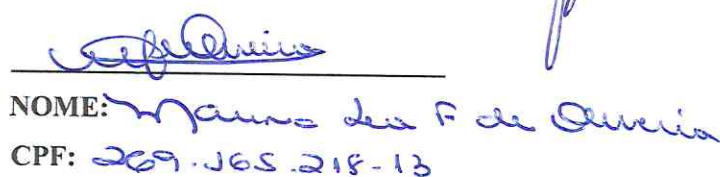 NOME: Mauro F de Oliveira
CPF: 269.165.218-13